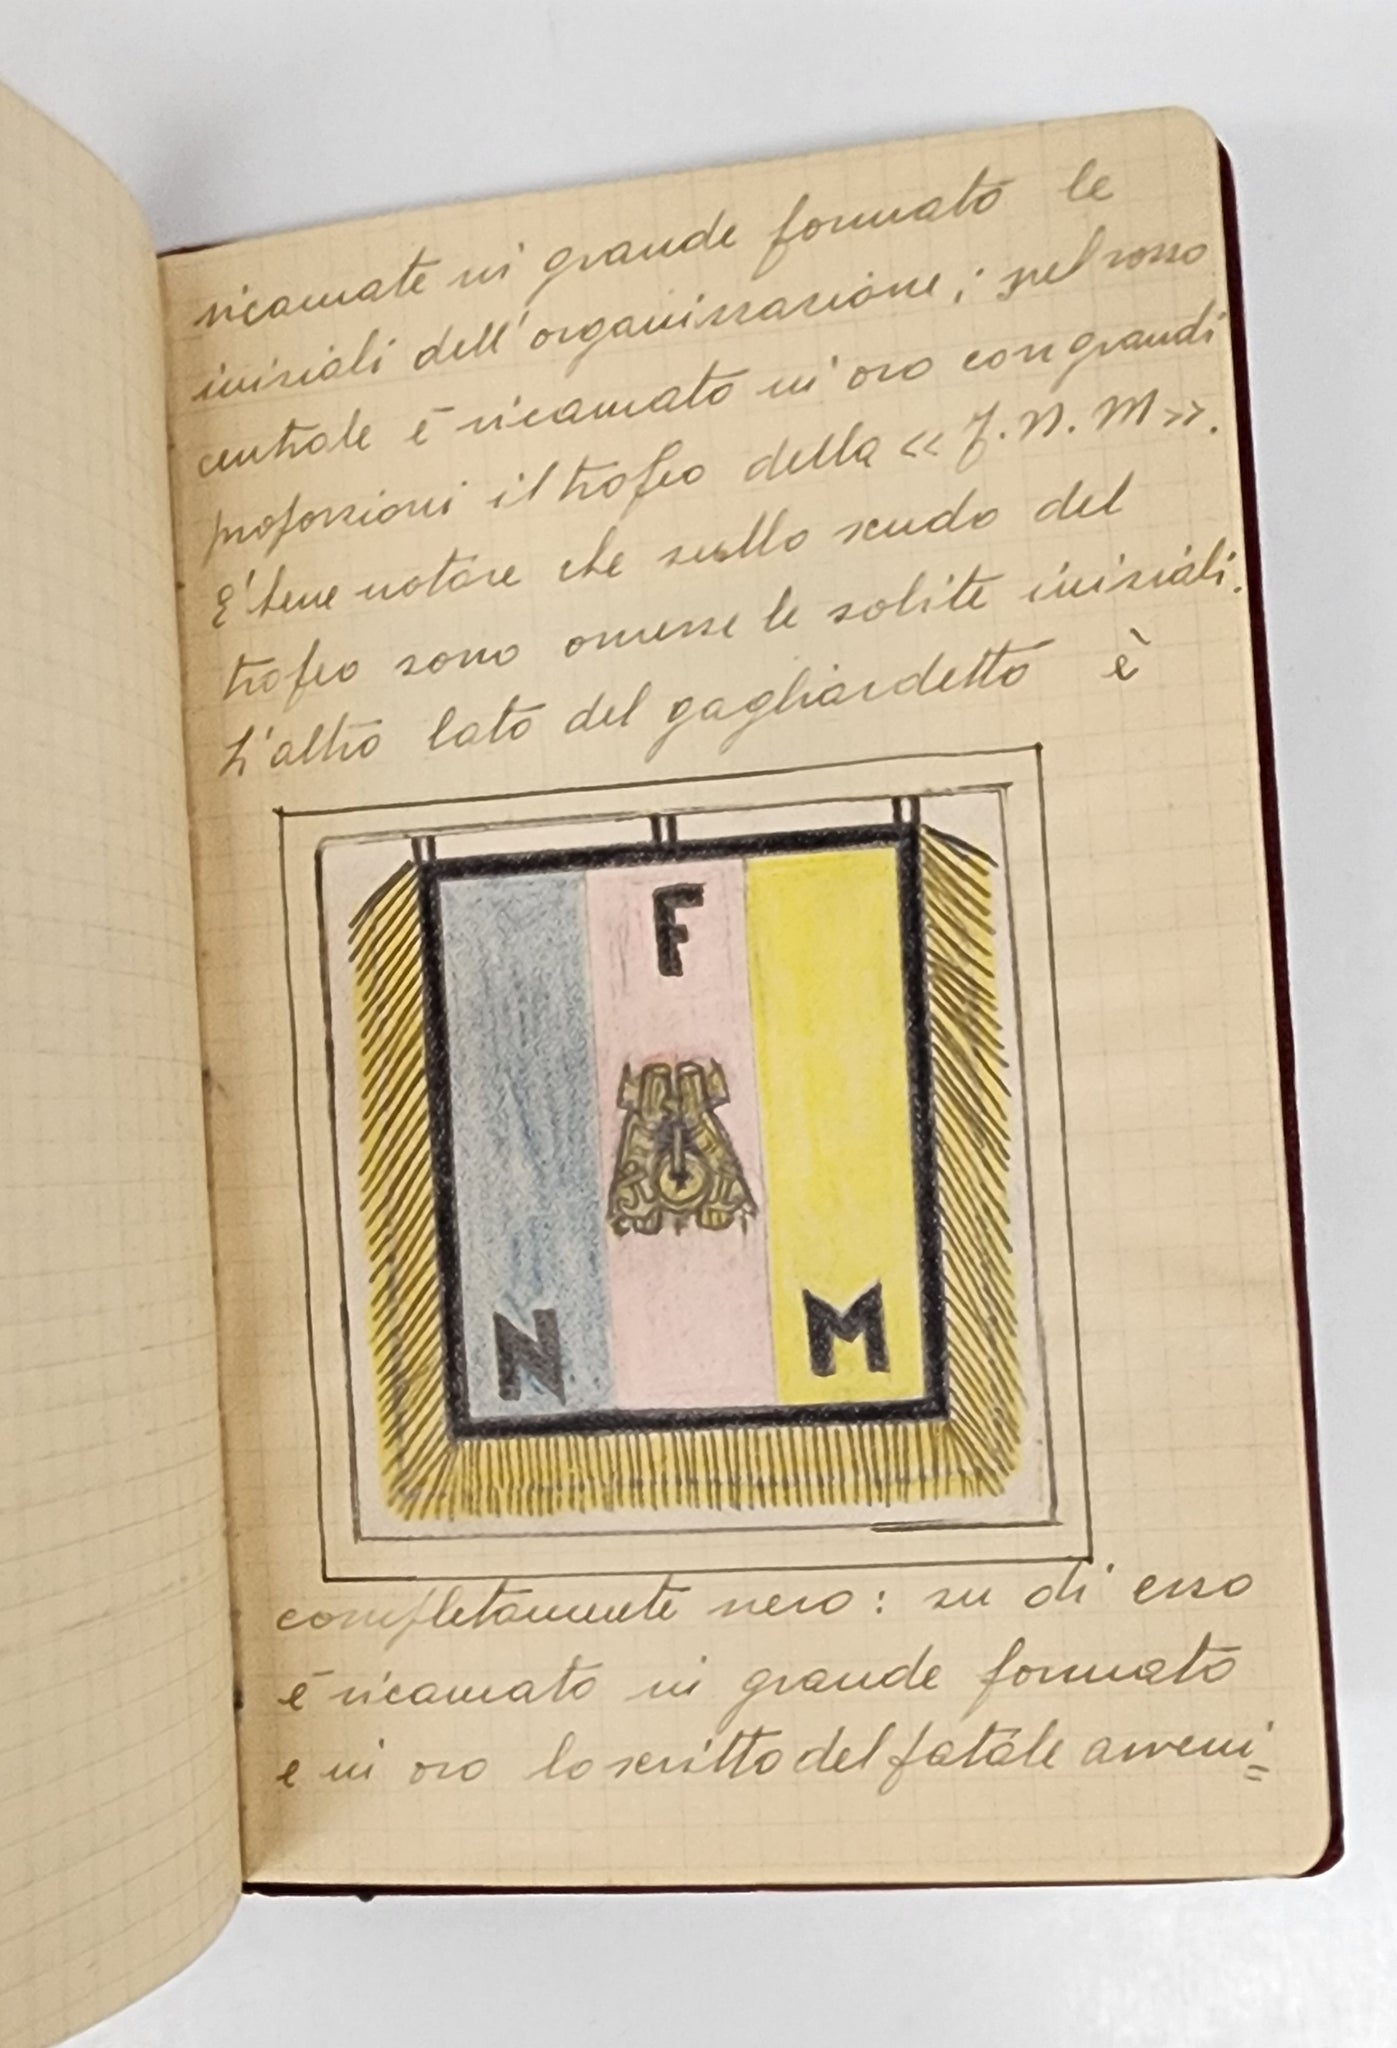 ricamate in grande formato le
iniziali dell'organizzazione; nel rosso
centrale è ricamato in oro con grandi
proporzioni il trofeo della «F. N. M».
E' bene notare che sullo scudo del
trofeo sono omesse le solite iniziali.
L'altro lato del gagliardetto è
F
N
M
completamente nero: su di esso
è ricamato in grande formato
e in oro lo scritto del fatale avveni=